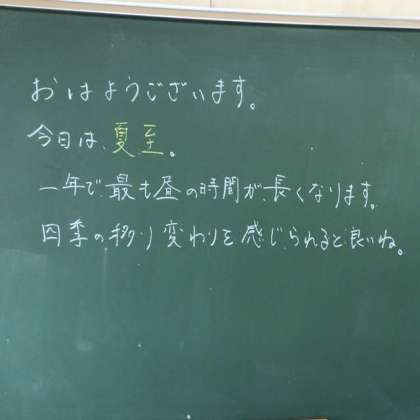 おはようございます。
今日は、夏至。
一年で、最も昼の時間が、長くなります。
四季の移り変わりを感じられると良いね。